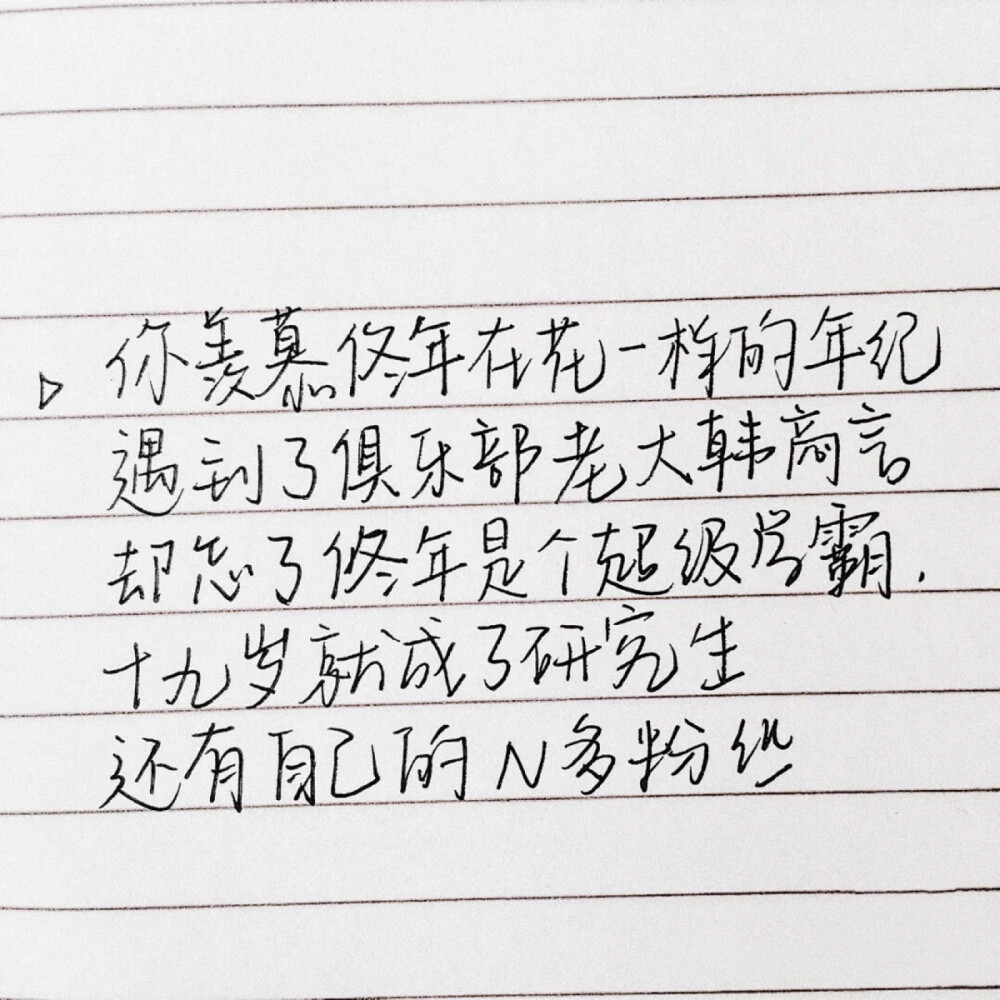 ▷ 你羡慕佟年在花一样的年纪
遇到了俱乐部老大韩商言
却忘了佟年是个超级学霸.
十九岁就成了研究生
还有自己的N多粉丝